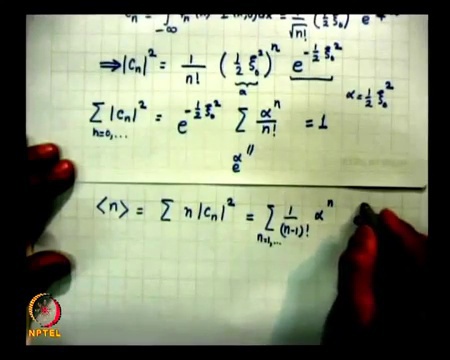 Cn = ∫ -∞ dx = 1/√n! (1/2 ξ₀²) e
⟹ |Cn|² = 1/n! (1/2 ξ₀²)ⁿ e^(-1/2 ξ₀²)
α α = 1/2 ξ₀²
∑ n=0,... |Cn|² = e^(-1/2 ξ₀²) ∑ αⁿ/n! = 1
e^α
<n> = ∑ n |Cn|² = ∑ n=1,... 1/(n-1)! αⁿ
NPTEL